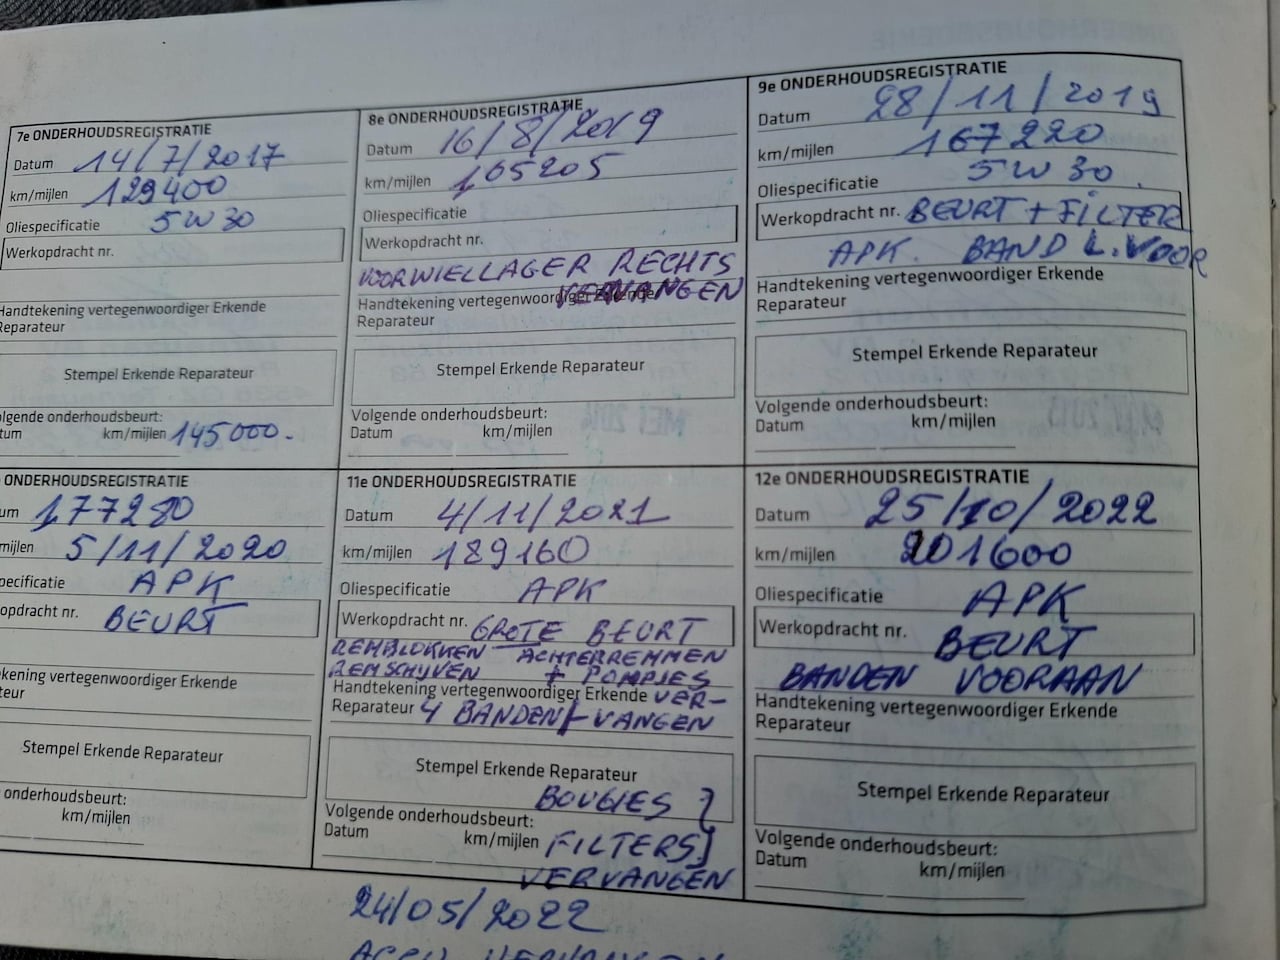 7e ONDERHOUDSREGISTRATIE
Datum 14/7/2017
km/mijlen 129400
Oliespecificatie 5W30
Werkopdracht nr.
Handtekening vertegenwoordiger Erkende
Reparateur
Stempel Erkende Reparateur
olgende onderhoudsbeurt:
tum km/mijlen 145000.
8e ONDERHOUDSREGISTRATIE
Datum 16/8/2019
km/mijlen 165205
Oliespecificatie
Werkopdracht nr.
VOORWIELLAGER RECHTS
VERVANGEN
Handtekening vertegenwoordiger Erkende
Reparateur
Stempel Erkende Reparateur
Volgende onderhoudsbeurt:
Datum km/mijlen
9e ONDERHOUDSREGISTRATIE
Datum 28/11/2019
km/mijlen 167220
Oliespecificatie 5W30.
Werkopdracht nr. BEURT + FILTER
APK. BAND L.VOOR
Handtekening vertegenwoordiger Erkende
Reparateur
Stempel Erkende Reparateur
Volgende onderhoudsbeurt:
Datum km/mijlen
ONDERHOUDSREGISTRATIE
um 177280
mijlen 5/11/2020
pecificatie APK
opdracht nr. BEURT
kening vertegenwoordiger Erkende
teur
Stempel Erkende Reparateur
onderhoudsbeurt:
km/mijlen
11e ONDERHOUDSREGISTRATIE
Datum 4/11/2021
km/mijlen 189160
Oliespecificatie APK
Werkopdracht nr. GROTE BEURT
REMBLOKKEN ACHTERREMMEN
REMSCHYVEN + POMPJES
Handtekening vertegenwoordiger Erkende VER-
Reparateur 4 BANDEN VANGEN
Stempel Erkende Reparateur
BOUGIES }
Volgende onderhoudsbeurt:
Datum km/mijlen FILTERS }
VERVANGEN
24/05/2022
ACCU VERVANGEN
12e ONDERHOUDSREGISTRATIE
Datum 25/10/2022
km/mijlen 201600
Oliespecificatie APK
Werkopdracht nr. BEURT
BANDEN VOORAAN
Handtekening vertegenwoordiger Erkende
Reparateur
Stempel Erkende Reparateur
Volgende onderhoudsbeurt:
Datum km/mijlen